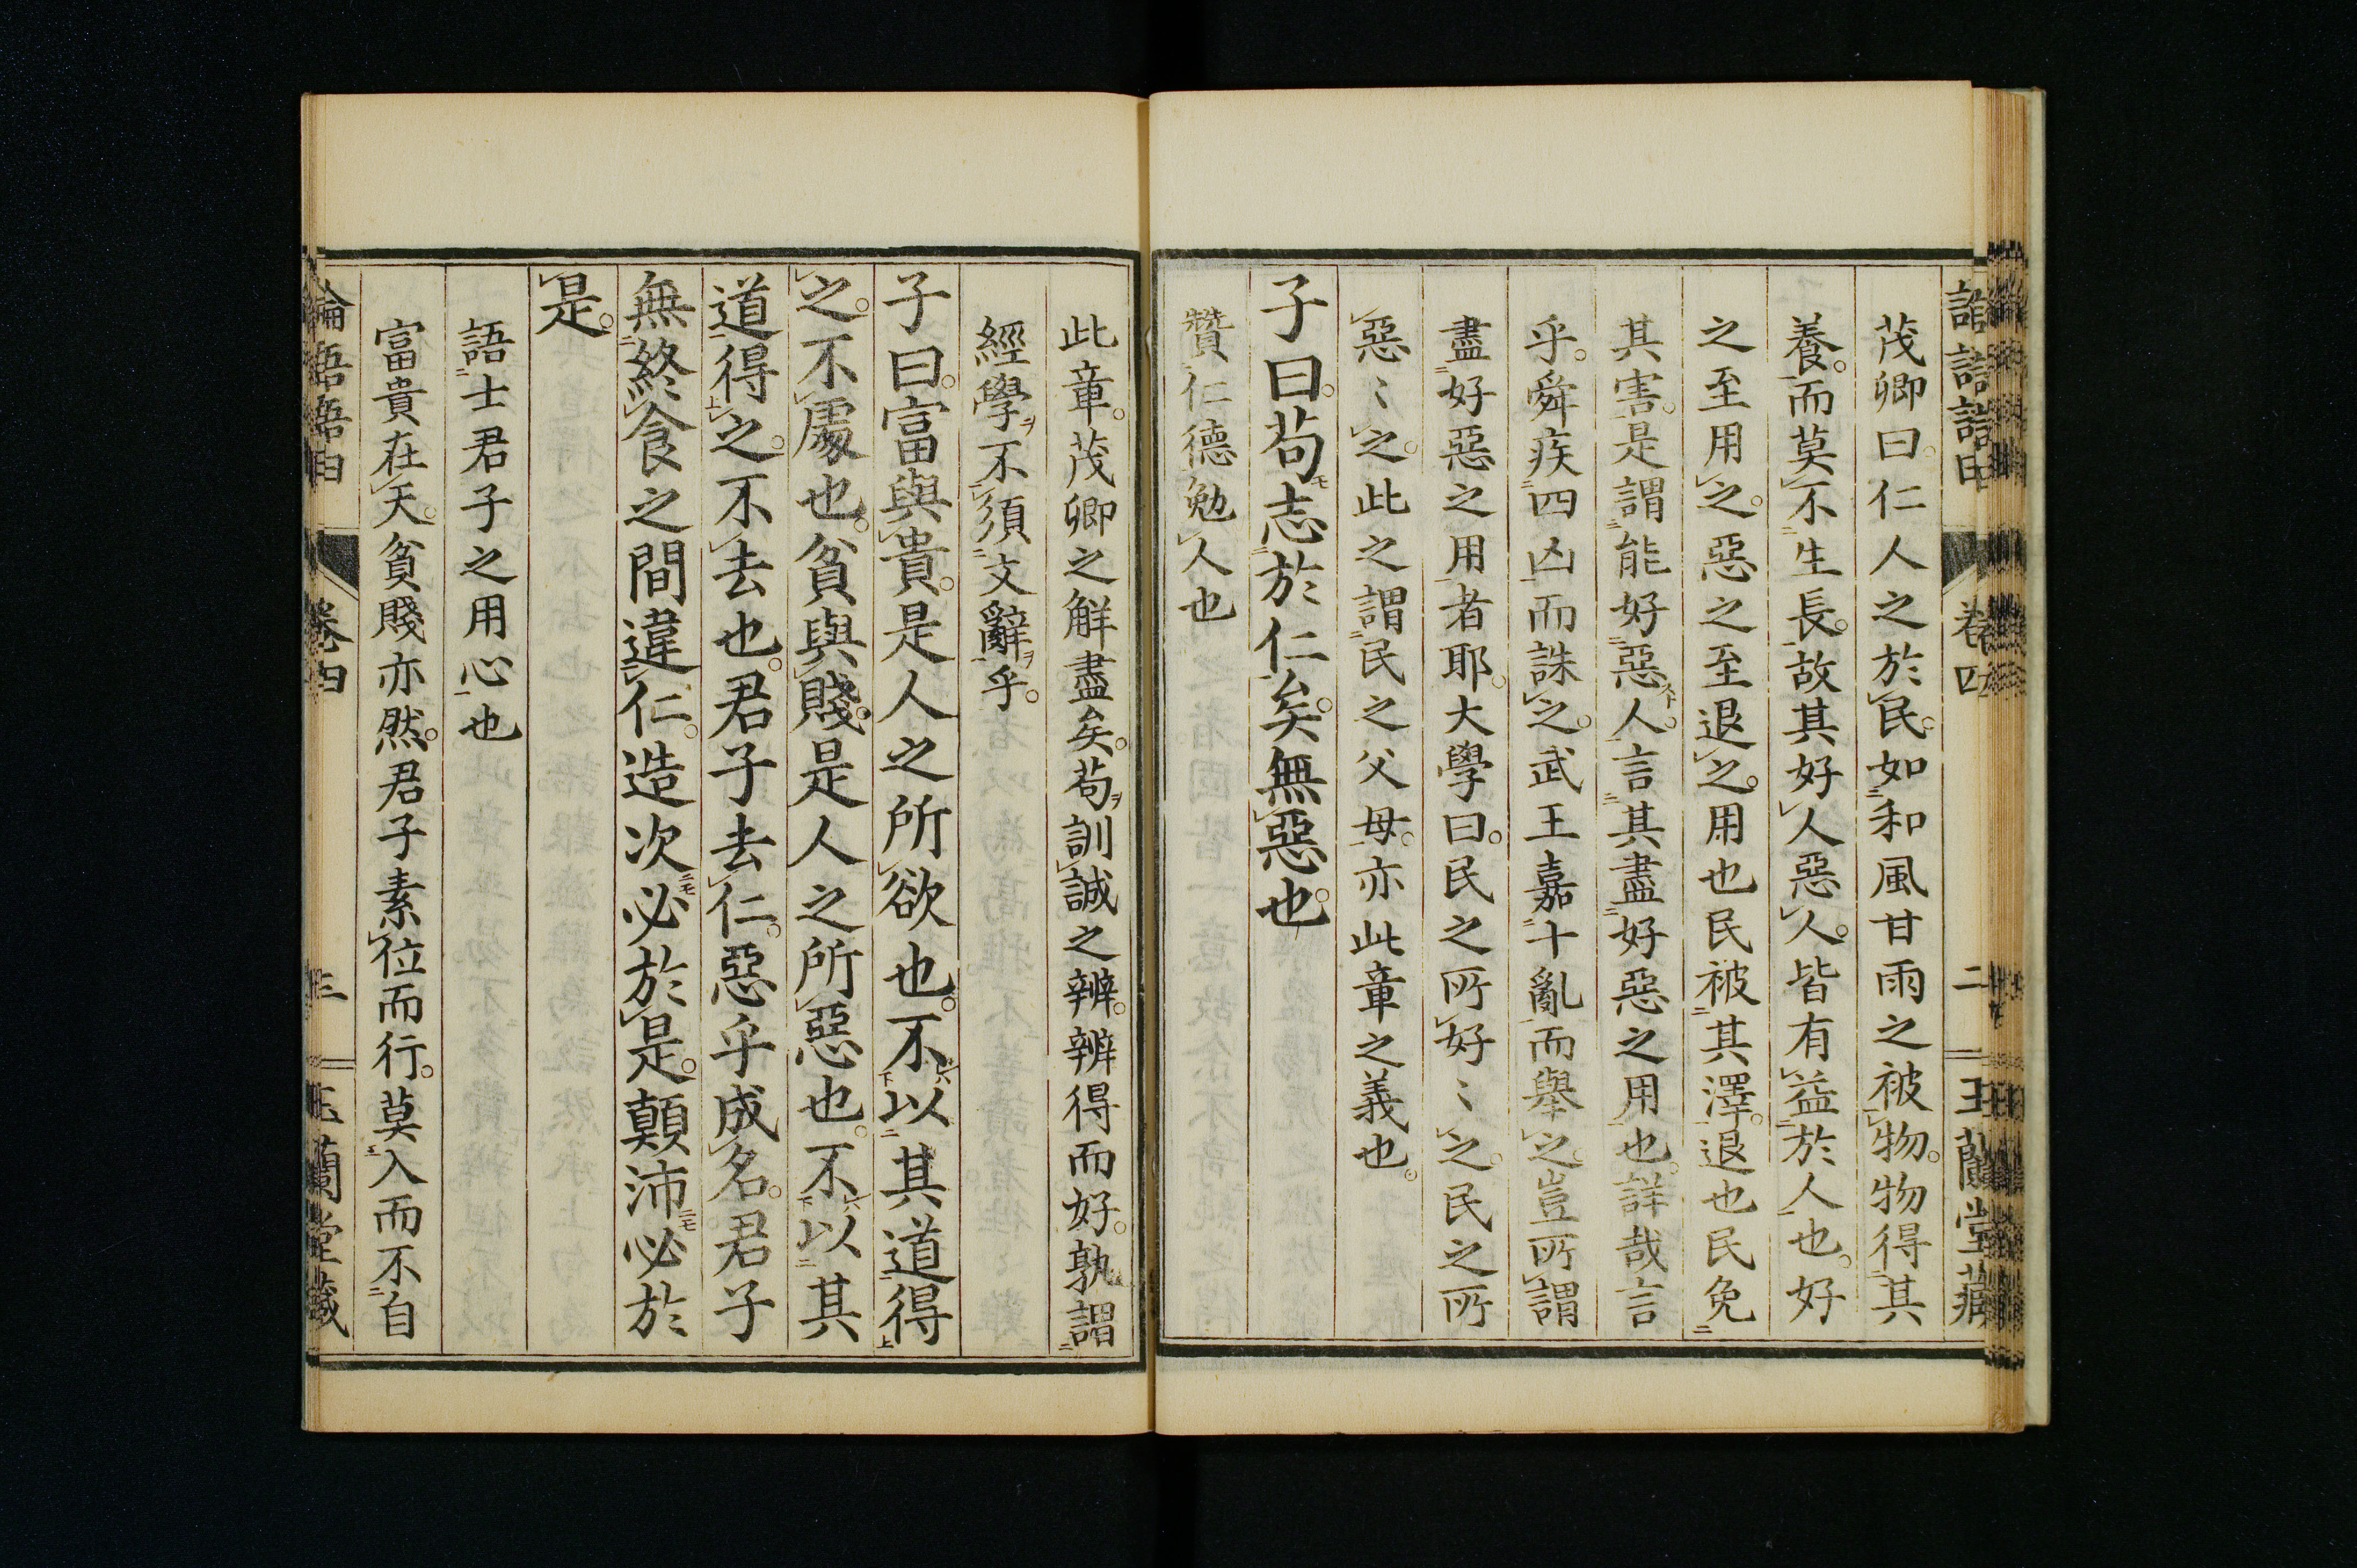 茂卿曰。仁人之於民。如和風甘雨之被物。物得其
養。而莫不生長。故其好人惡人。皆有益於人也。好
之至用之。惡之至退之。用也民被其澤。退也民免
其害。是謂能好惡人。言其盡好惡之用也。詳哉言
乎。舜疾四凶而誅之。武王嘉十亂而舉之。豈所謂
盡好惡之用者耶。大學曰。民之所好〻之。民之所
惡〻之。此之謂民之父母。亦此章之義也。
子曰。苟志於仁矣。無惡也。
贊仁德勉人也
此章。茂卿之解盡矣。苟訓誠之辨。辨得而好。孰謂
經學不須文辭乎。
子曰。富與貴。是人之所欲也。不以其道得
之。不處也。貧與賤。是人之所惡也。不以其
道得之。不去也。君子去仁。惡乎成名。君子
無終食之間違仁。造次必於是。顛沛必於
是。
語士君子之用心也
富貴在天。貧賤亦然。君子素位而行。莫入而不自
論語語由
卷四
三
玉蘭堂藏